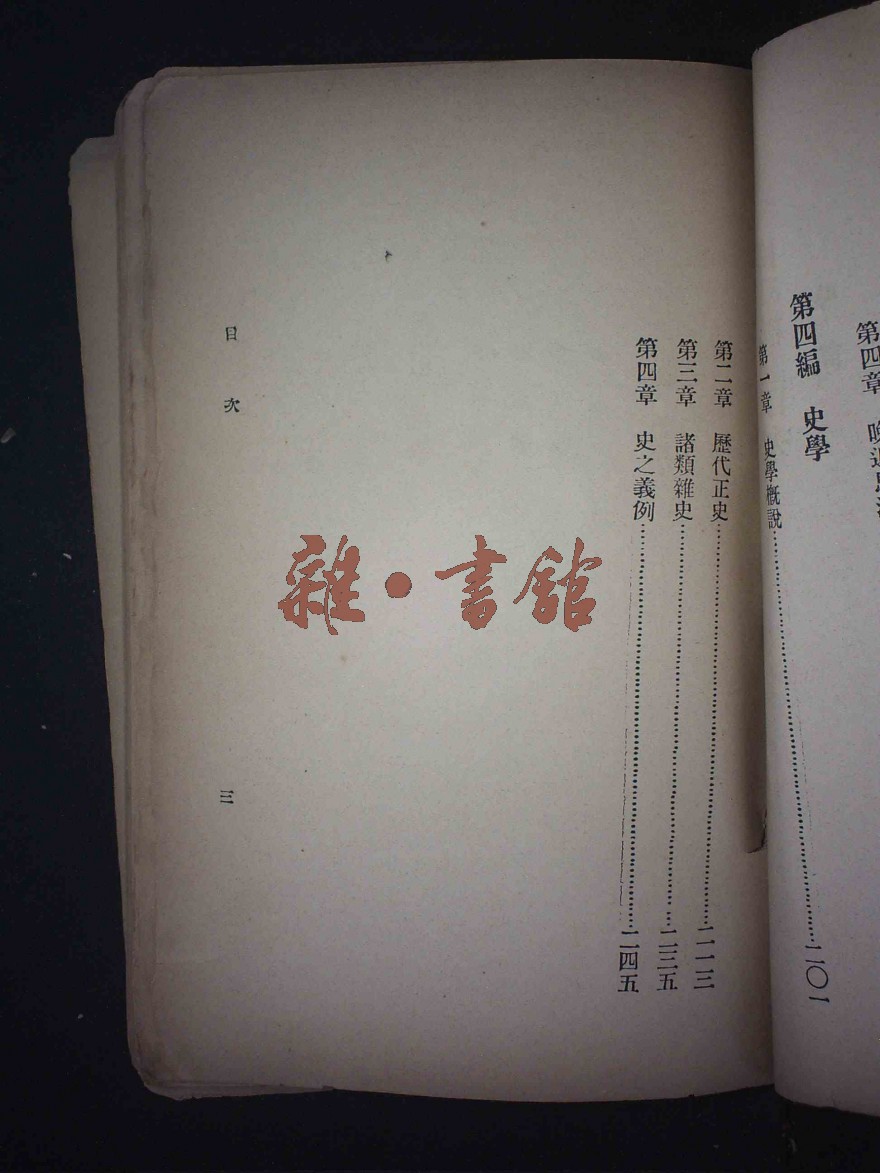 第四章
第四編 史學
第一章 史學概說……二〇一
第二章 歷代正史……二一三
第三章 諸類雜史……二三五
第四章 史之義例……二四五
目次
三
雜·書館